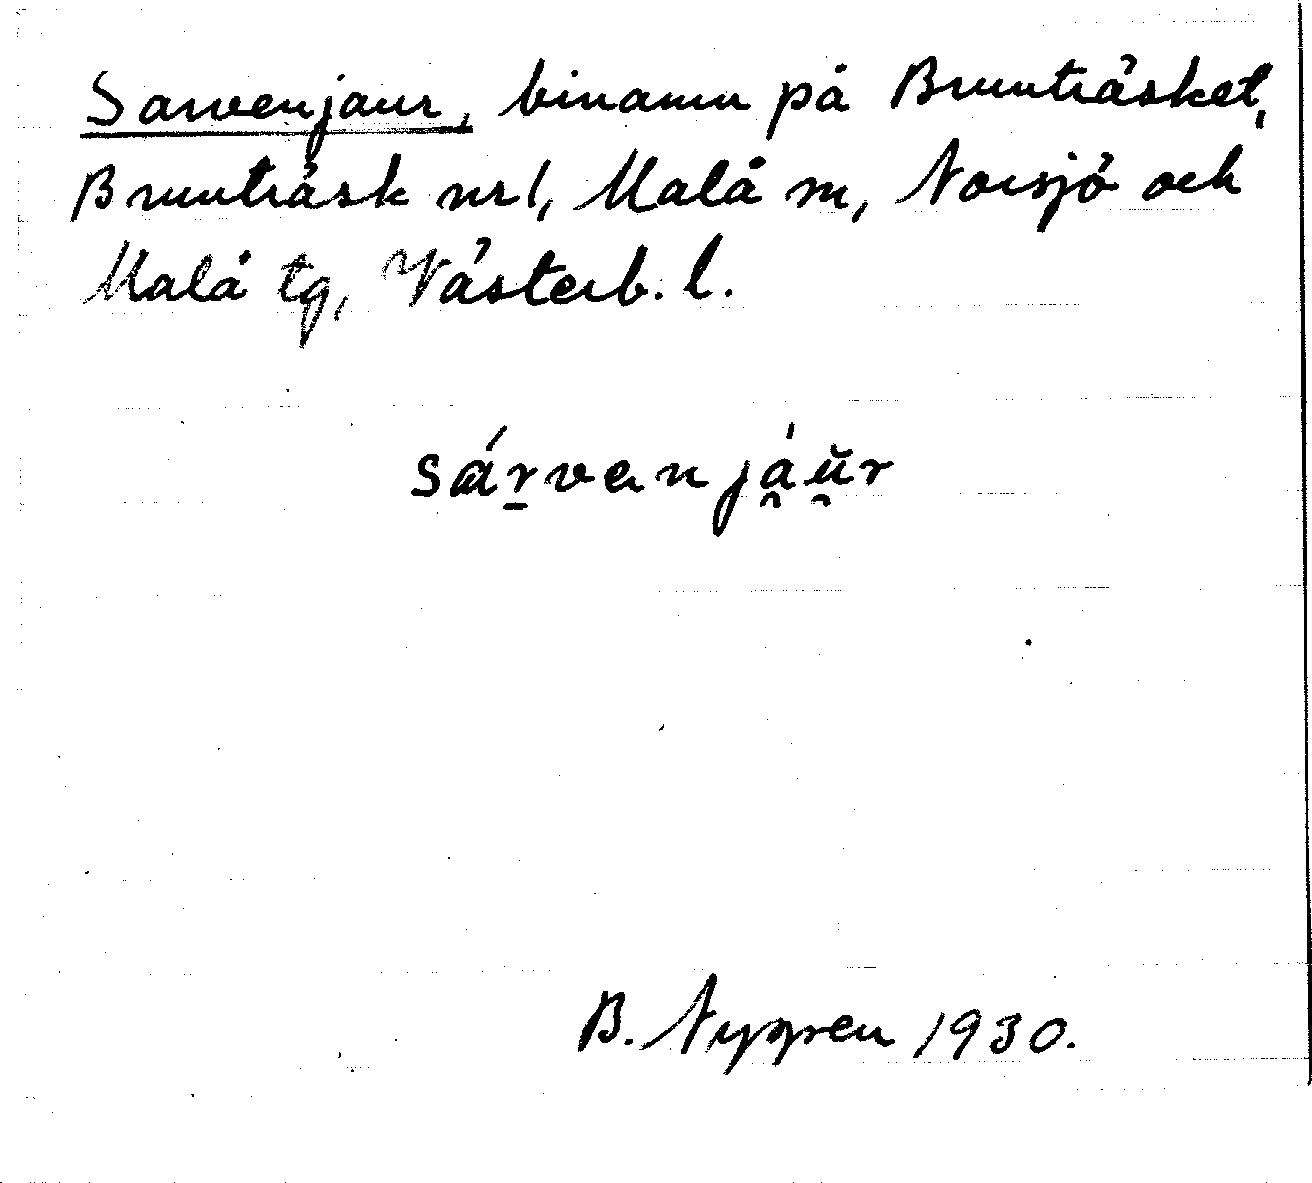 Sarvenjaur, binamn på Brunträsket,
Brunträsk nr 1, Malå sn, Norsjö och
Malå tg, Västerb. l.
sárvenjáu̯r
B. Nygren 1930.